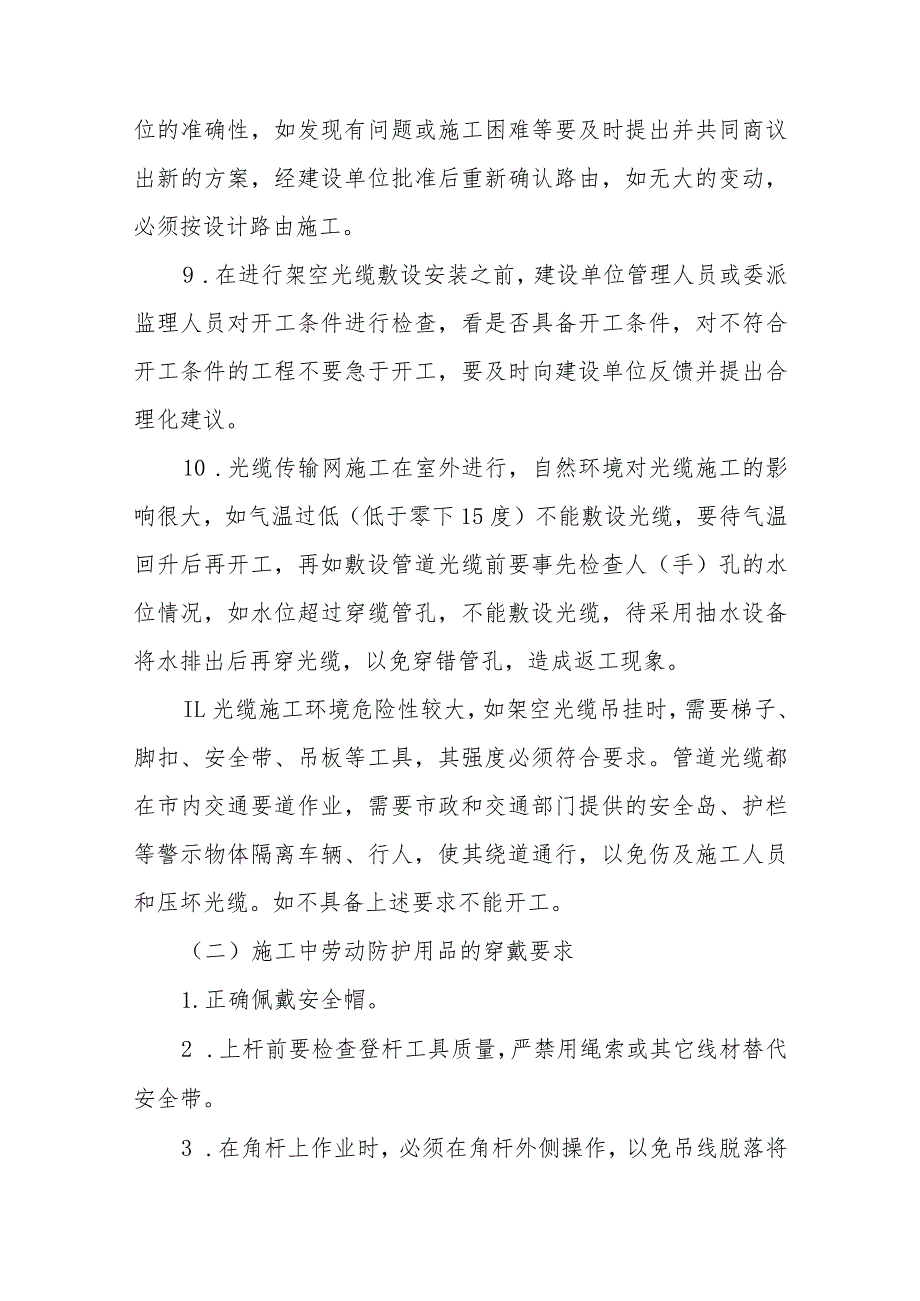 位的准确性，如发现有问题或施工困难等要及时提出并共同商议
出新的方案，经建设单位批准后重新确认路由，如无大的变动，
必须按设计路由施工。
9 .在进行架空光缆敷设安装之前，建设单位管理人员或委派
监理人员对开工条件进行检查，看是否具备开工条件，对不符合
开工条件的工程不要急于开工，要及时向建设单位反馈并提出合
理化建议。
10 .光缆传输网施工在室外进行，自然环境对光缆施工的影
响很大，如气温过低（低于零下 15 度）不能敷设光缆，要待气温
回升后再开工，再如敷设管道光缆前要事先检查人（手）孔的水
位情况，如水位超过穿缆管孔，不能敷设光缆，待采用抽水设备
将水排出后再穿光缆，以免穿错管孔，造成返工现象。
IL 光缆施工环境危险性较大，如架空光缆吊挂时，需要梯子、
脚扣、安全带、吊板等工具，其强度必须符合要求。管道光缆都
在市内交通要道作业，需要市政和交通部门提供的安全岛、护栏
等警示物体隔离车辆、行人，使其绕道通行，以免伤及施工人员
和压坏光缆。如不具备上述要求不能开工。
（二）施工中劳动防护用品的穿戴要求
1.正确佩戴安全帽。
2 .上杆前要检查登杆工具质量，严禁用绳索或其它线材替代
安全带。
3 .在角杆上作业时，必须在角杆外侧操作，以免吊线脱落将